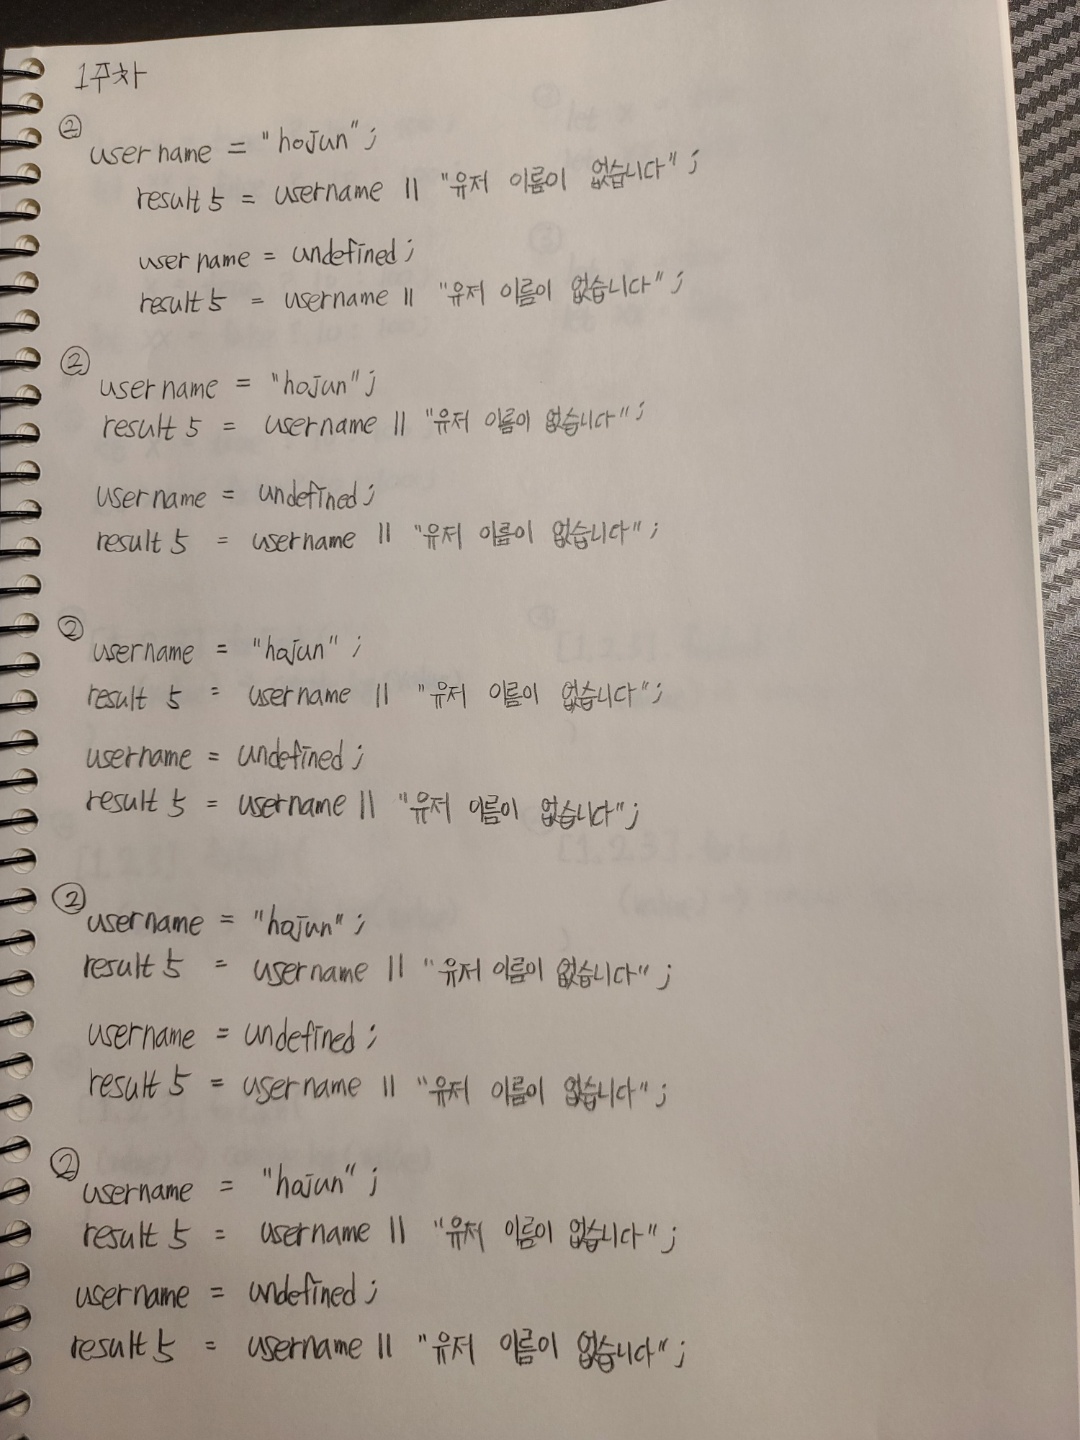 1주차
②
username = "hojun";
result5 = username || "유저 이름이 없습니다";
username = undefined;
result5 = username || "유저 이름이 없습니다";
②
username = "hojun";
result 5 = username || "유저 이름이 없습니다";
username = undefined;
result 5 = username || "유저 이름이 없습니다";
②
username = "hojun";
result 5 = username || "유저 이름이 없습니다";
username = undefined;
result 5 = username || "유저 이름이 없습니다";
②
username = "hojun";
result 5 = username || "유저 이름이 없습니다";
username = undefined;
result 5 = username || "유저 이름이 없습니다";
②
username = "hojun";
result 5 = username || "유저 이름이 없습니다";
username = undefined;
result 5 = username || "유저 이름이 없습니다";